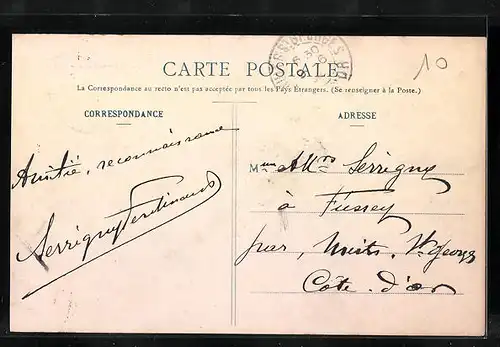 CARTE POSTALE
10
La Correspondance au recto n'est pas acceptée par tous les Pays Étrangers. (Se renseigner à la Poste.)
CORRESPONDANCE
Amitié, reconnaissance
Serrigny Ferdinand
ADRESSE
Serrigny
à Fussey
par, Nuits, St georges
Cote-d'or